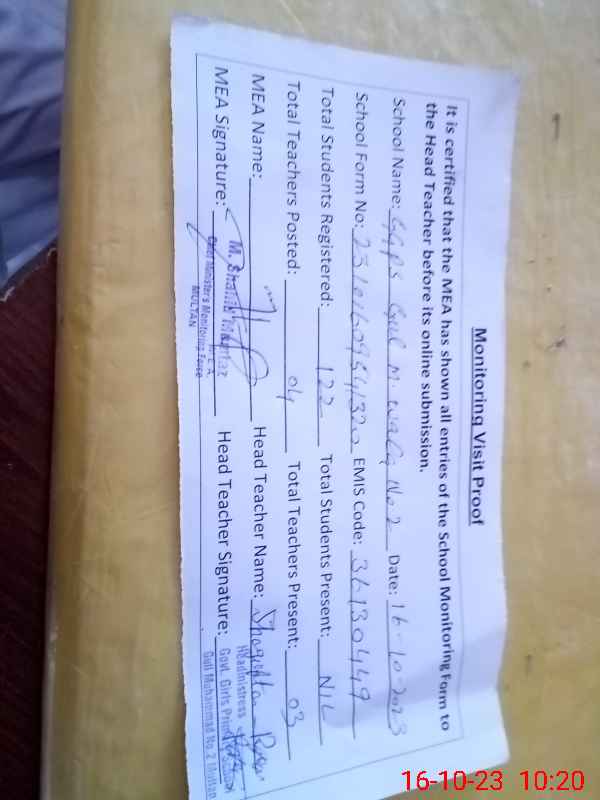 Monitoring Visit Proof
It is certified that the MEA has shown all entries of the School Monitoring Form to
the Head Teacher before its online submission.
School Name: GGPS Gul M. wala No 2 Date: 16-10-2023
School Form No: EMIS Code: 36130449
Total Students Registered: 122 Total Students Present: NIL
Total Teachers Posted: 04 Total Teachers Present: 03
MEA Name: Head Teacher Name: Shagufta
MEA Signature: Head Teacher Signature:
M. Shahid Mumtaz
M. E. A.
Chief Minister's Monitoring Force
MULTAN
Headmistress
Govt. Girls Primary School
Gull Muhammad No. 2 Multan
16-10-23 10:20